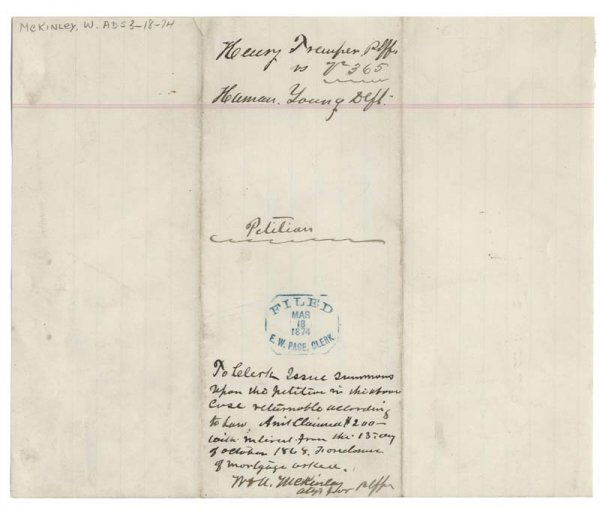 McKinley, W. ADS 3-18-74
Henry Tremper Plff.
vs No 365
Haman. Young Deft.
Petition
FILED
MAR
18
1874
E. W. PAGE, CLERK
To Clerk Issue summons
upon the petition in the above
Case returnable according
to Law, Amt Claimed $200—
with interest from the 13 day
of October 1868. Foreclosure
of mortgage asked.
McKinley
attys for Plff